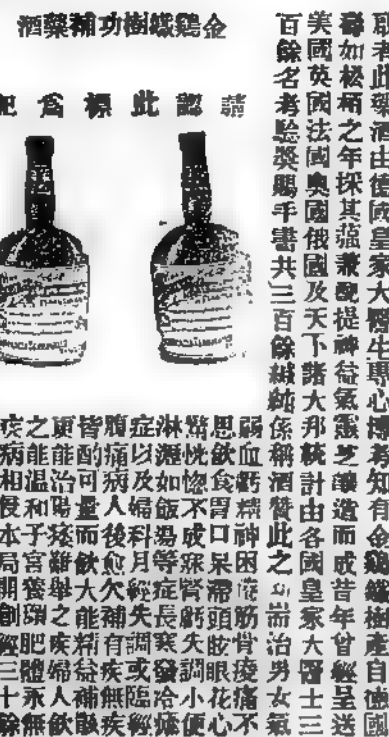 金鷄鐵樹功補藥酒
請認此標為記
取者此藥酒由德國皇家大醫生專心博考知有金鷄鐵樹產自德國
壽如松栢之年採其蕴兼配提神益氣靈芝釀造而成昔年曾經呈送
美國英國法國奧國俄國及天下諸大邦統計由各國皇家大醫士三
百餘名考驗獎賜手書共三百餘緘純係稱酒贊此之功耑治男女氣
弱血虧精神困倦筋骨痠痛不
思飲食胃口呆滯頭眩眼花心
驚恍惚不成寐腎虧失調小便
淋瀝如飯湯等症長寒發冷瘧
症以及婦科月經失調或臨經
腹痛病人後愈欠補有疾無疾
皆酌可量而飲大能精益補散
更能治陽痿難舉之疾婦人飲
之能温和子宮養頸肥體永無
疾病相侵本局開創經三十餘